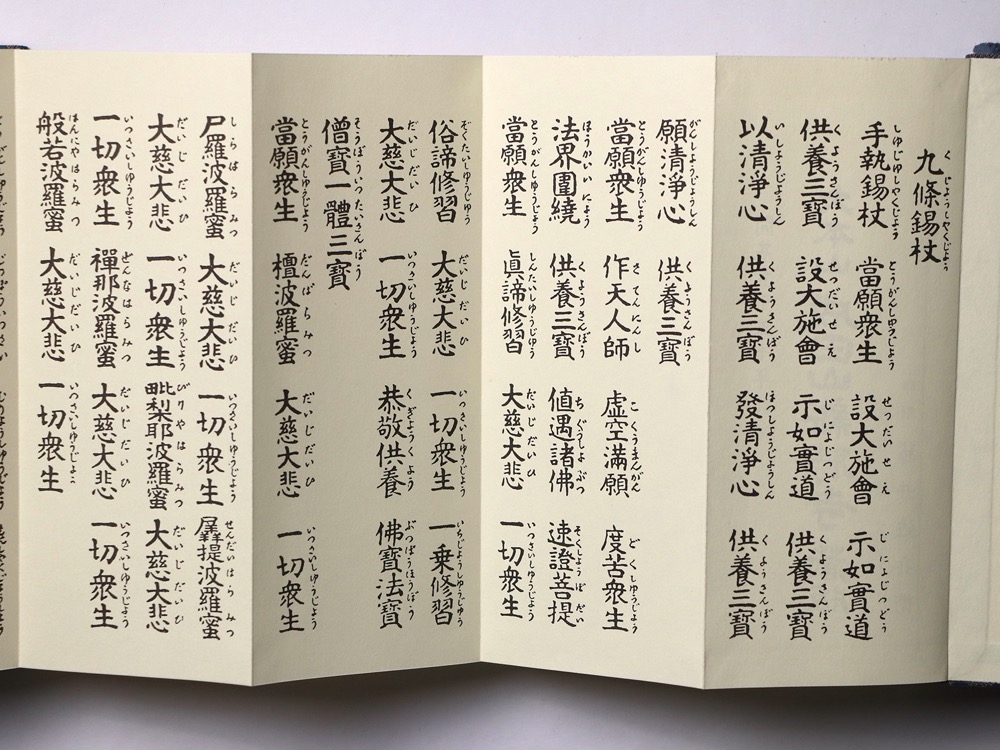 九條錫杖
手執錫杖 當願衆生 設大施會 示如實道
供養三寶 設大施會 示如實道 供養三寶
以清淨心 供養三寶 發清淨心 供養三寶
願清淨心 供養三寶
當願衆生 作天人師 虚空滿願 度苦衆生
法界圍繞 供養三寶 値遇諸佛 速證菩提
當願衆生 眞諦修習 大慈大悲 一切衆生
俗諦修習 大慈大悲 一切衆生 一乗修習
大慈大悲 一切衆生 恭敬供養 佛寶法寶
僧寶一體三寶
當願衆生 檀波羅蜜 大慈大悲 一切衆生
尸羅波羅蜜 大慈大悲 一切衆生 羼提波羅蜜
大慈大悲 一切衆生 毗梨耶波羅蜜 大慈大悲
一切衆生 禪那波羅蜜 大慈大悲 一切衆生
般若波羅蜜 大慈大悲 一切衆生